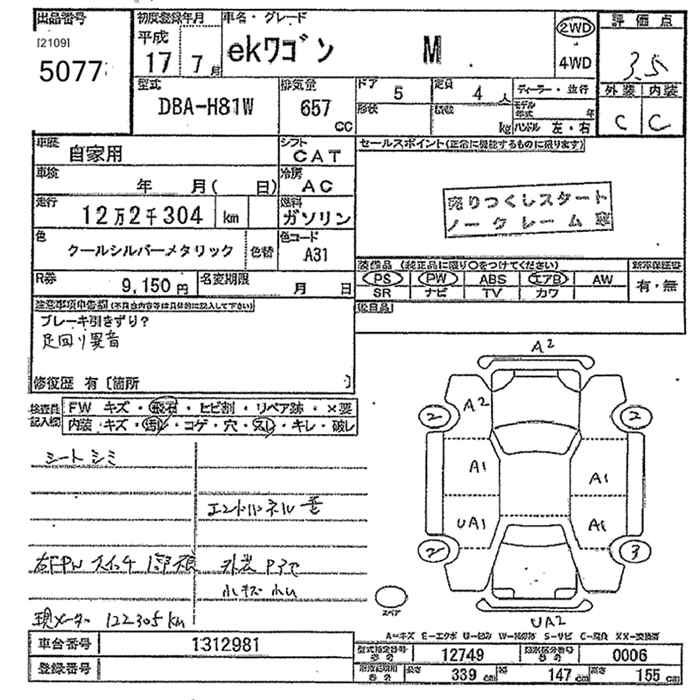 出品番号
[2109]
5077
初度登録年月
平成
17 7月
車名・グレード
ekワゴン M
2WD
4WD
評価点
3.5
外装 内装
C C
型式
DBA-H81W
排気量
657
CC
ドア
5
定員
4人
形状
積載
kg
ディーラー・並行
モデル
年式 年
ハンドル 左・右
車歴
自家用
シフト
CAT
車検
年 月( 日)
冷房
AC
走行
12万2千304 km
燃料
ガソリン
色
クールシルバーメタリック
色替
色コード
A31
R券
9,150円
名変期限
月 日
セールスポイント(正常に機能するものに限ります)
売りつくしスタート
ノークレーム
装備品 (純正品に限り○をつけてください)
PS PW ABS エアB AW
SR ナビ TV カワ
新車保証書
有・無
欠品
注意事項申告欄(不具合内容等は具体的に記入して下さい)
ブレーキ引きずり?
足回り異音
修復歴 有〔箇所 〕
検査員
記入欄
FW キズ・飛石・ヒビ割・リペア跡・×要
内装・キズ・汚レ・コゲ・穴・スレ・キレ・破レ
シートシミ
エントルネル
右FPW スイッチ
外装
小キズ 小凹
現メーター 122305km
A2
2
A2
2
A1
A1
UA1
A1
2
3
スペア
UA2
A-キズ E-エクボ U-凹み W-補修跡 S-サビ C-腐食 XX-交換済
車台番号
1312981
登録番号
型式指定番号
12749
類別区分番号
0006
長さ
339cm
幅
147cm
高さ
155cm